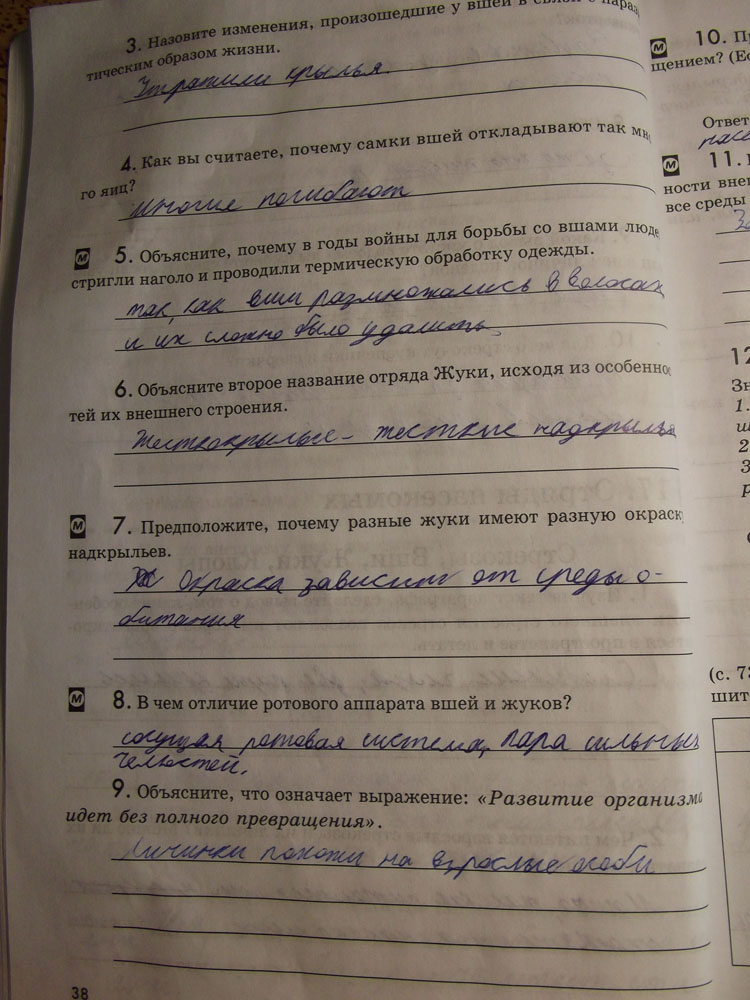 3. Назовите изменения, произошедшие у вшей в связи с параз
тическим образом жизни.
Утратили крылья.
4. Как вы считаете, почему самки вшей откладывают так мно
го яиц?
многие погибают
М 5. Объясните, почему в годы войны для борьбы со вшами люде
стригли наголо и проводили термическую обработку одежды.
так, как вши размножались в волосах
и их сложно было удалить
6. Объясните второе название отряда Жуки, исходя из особеннос
тей их внешнего строения.
Жесткокрылые - жесткие надкрылья
М 7. Предположите, почему разные жуки имеют разную окраск
надкрыльев.
Окраска зависит от среды о-
битания
М 8. В чем отличие ротового аппарата вшей и жуков?
сосущая ротовая система, пара сильных
челюстей.
9. Объясните, что означает выражение: «Развитие организма
идет без полного превращения».
Личинки похожи на взрослые особи
38
М 10. П
щением? (Ес
Ответ
М 11.
ности вне
все среды
12
Зн
1.
ш
2
3
р
(с. 73
шит